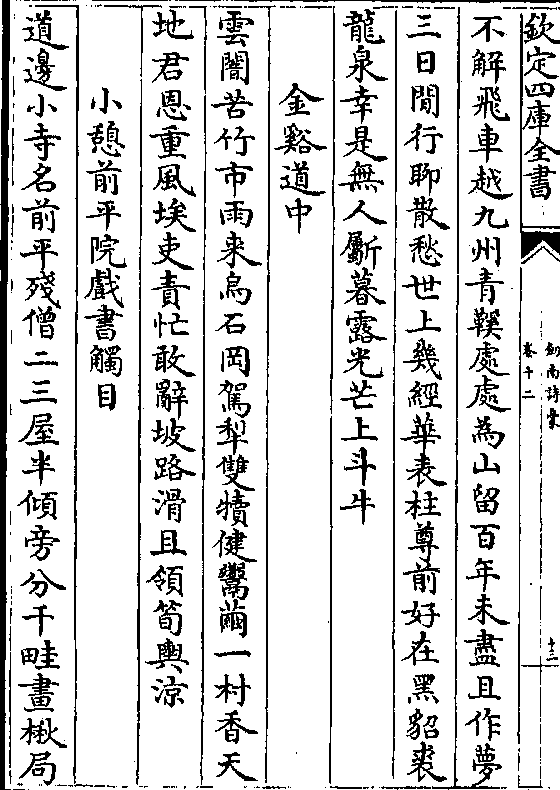 欽定四庫全書
劍南詩稾
卷十二
十三
不解飛車越九州青鞵處處為山留百年未盡且作夢
三日閒行聊散愁世上幾經華表柱尊前好在黑貂裘
龍泉幸是無人斸暮露光芒上斗牛
金谿道中
雲闇苦竹市雨来烏石岡駕犁雙犢健鬻繭一村香天
地君恩重風埃吏責忙敢辭坡路滑且領筍輿涼
小憩前平院戲書觸目
道邊小寺名前平殘僧二三屋半傾旁分千畦畫楸局